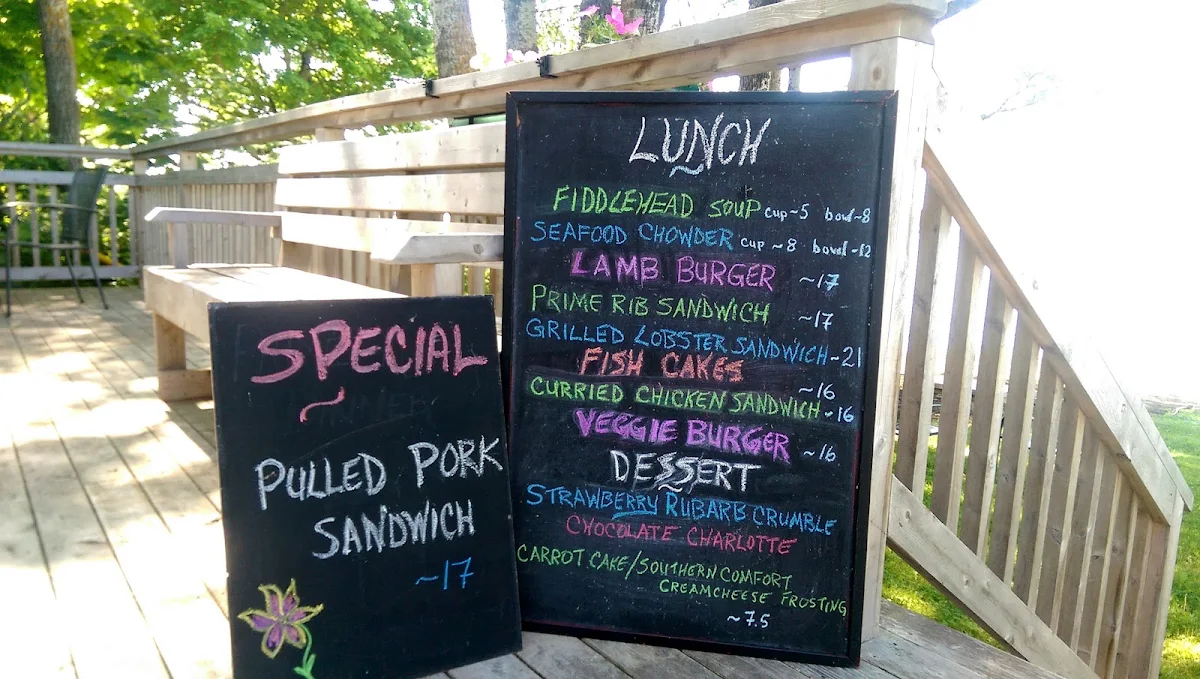 SPECIAL
~
PULLED PORK
SANDWICH
~17
LUNCH
~
FIDDLEHEAD SOUP cup~5 bowl~8
SEAFOOD CHOWDER cup ~8 bowl ~12
LAMB BURGER ~17
PRIME RIB SANDWICH ~17
GRILLED LOBSTER SANDWICH ~21
FISH CAKES ~16
CURRIED CHICKEN SANDWICH ~16
VEGGIE BURGER ~16
DESSERT
STRAWBERRY RUBARB CRUMBLE
CHOCOLATE CHARLOTTE
CARROT CAKE/SOUTHERN COMFORT
CREAMCHEESE FROSTING
~7.5